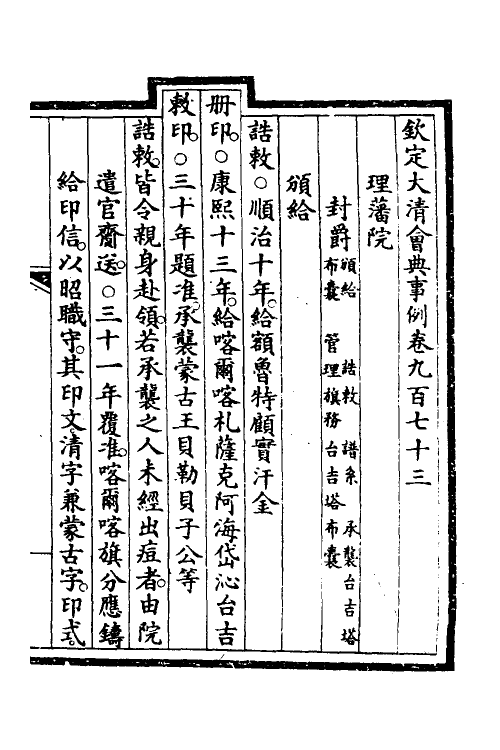 欽定大清會典事例卷九百七十三
理藩院
封爵 頒給 誥敕 譜系 承襲台吉塔
布囊 管理旗務台吉塔布囊
頒給
誥敕○順治十年。給額魯特顧實汗金
册印。○康熙十三年。給喀爾喀札薩克阿海岱沁台吉
敕印。○三十年題准。承襲蒙古王貝勒貝子公等
誥敕。皆令親身赴領。若承襲之人未經出痘者。由院
遣官齎送。○三十一年覆准。喀爾喀旗分應鑄
給印信。以昭職守。其印文。清字兼蒙古字。印式。